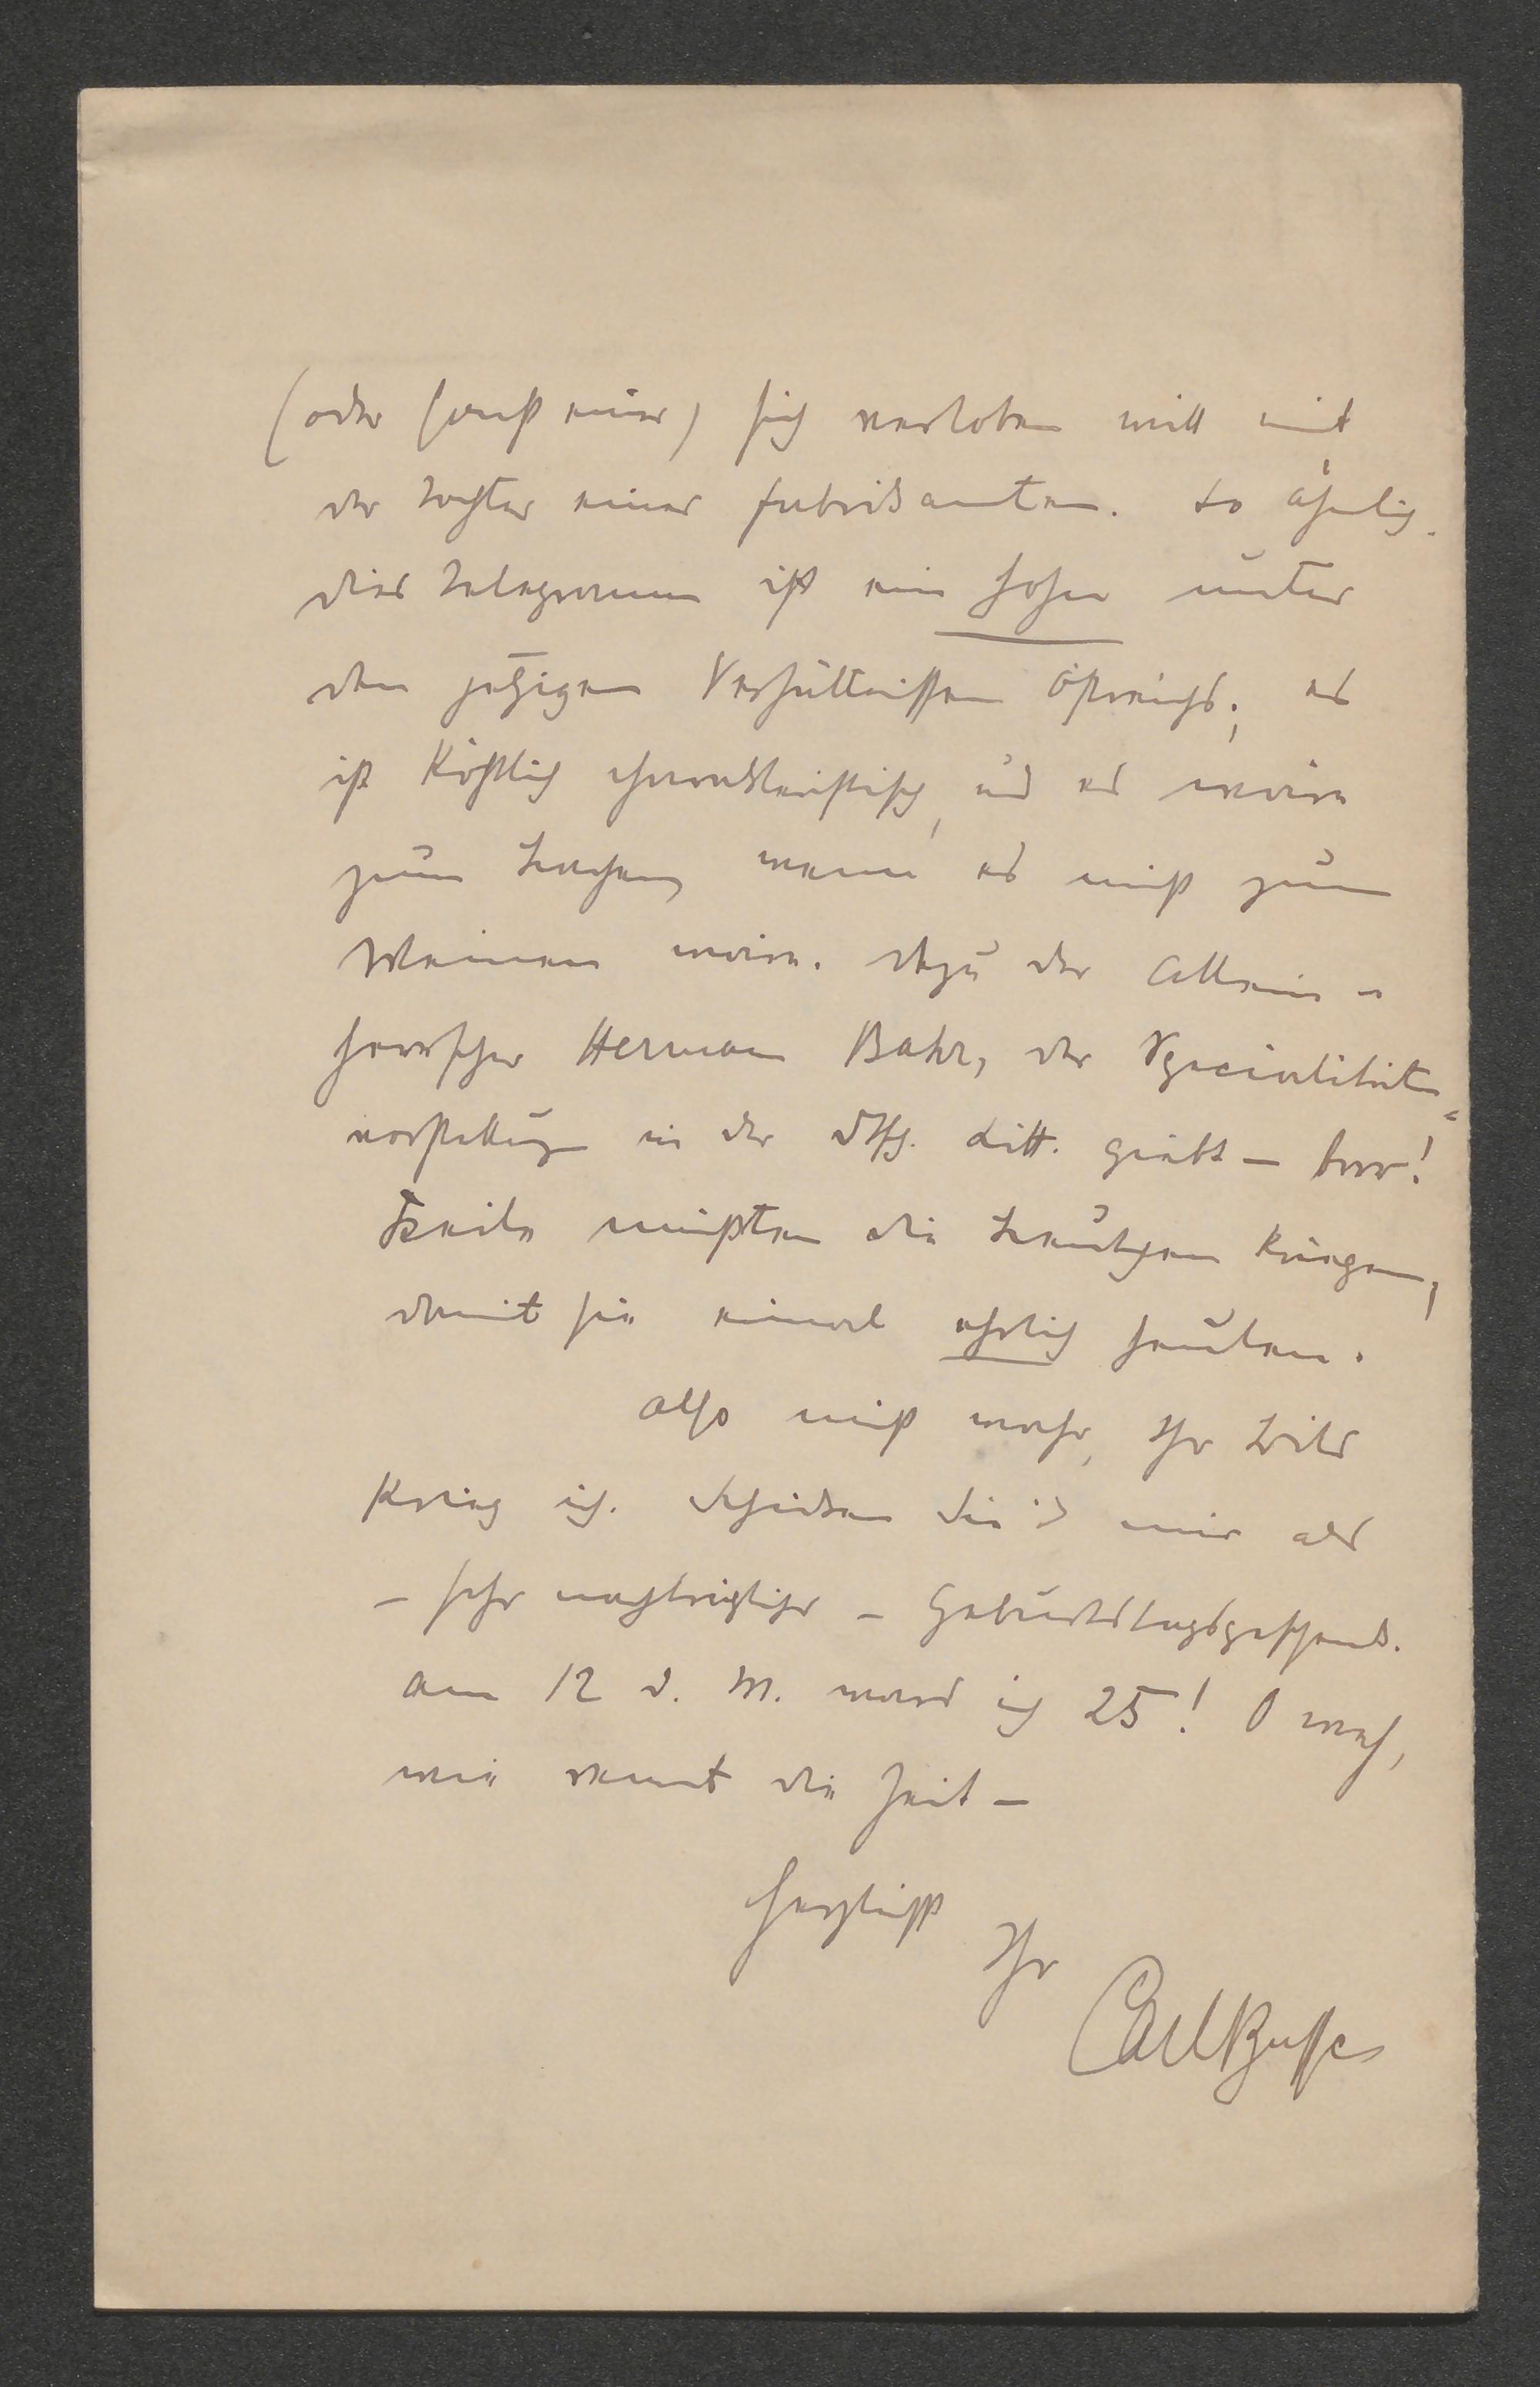 (oder sonst einer) sich verloben will mit
der Tochter eines Fabrikanten. So ähnlich.
Dies Telegramm ist ein Hohn unter
den jetzigen Verhältnissen Östreichs; es
ist köstlich charakteristisch, und es wäre
zum Lachen, wenn es nicht zum
Weinen wäre. Dazu der Allein-
herrscher Herman Bahr, der Specialitäten-
vorstellungen in der Dtsch. Litt. giebt – brrr!
Keile müßten die Leutchen kriegen,
damit sie einmal ehrlich heulen.
Also nicht wahr, Ihr Bild
krieg ich. Schicken Sie's mir als
– sehr nachträgliches – Geburtstagsgeschenk.
Am 12 d. M. ward ich 25! O weh,
wie rennt die Zeit –
Herzlichst
Ihr
Carl Busse